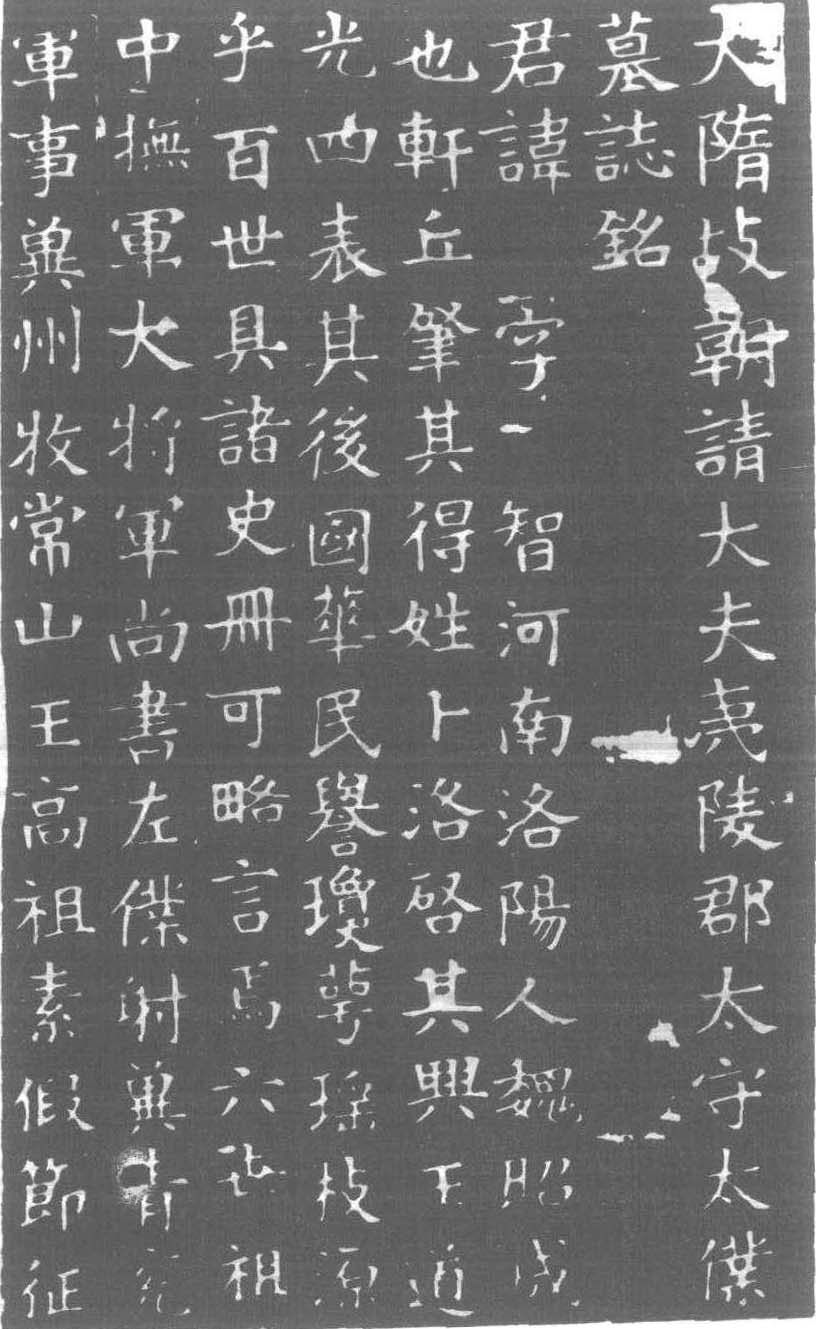 大隋故朝請大夫夷陵郡太守太僕
墓誌銘
君諱 字 智河南洛陽人魏昭成
也軒丘肇其得姓卜洛啓其興王道
光四表其後國華民譽瓊萼瑤枝源
乎百世具諸史冊可略言焉六世祖
中撫軍大將軍尚書左僕射冀青兗
軍事冀州牧常山王高祖素假節征